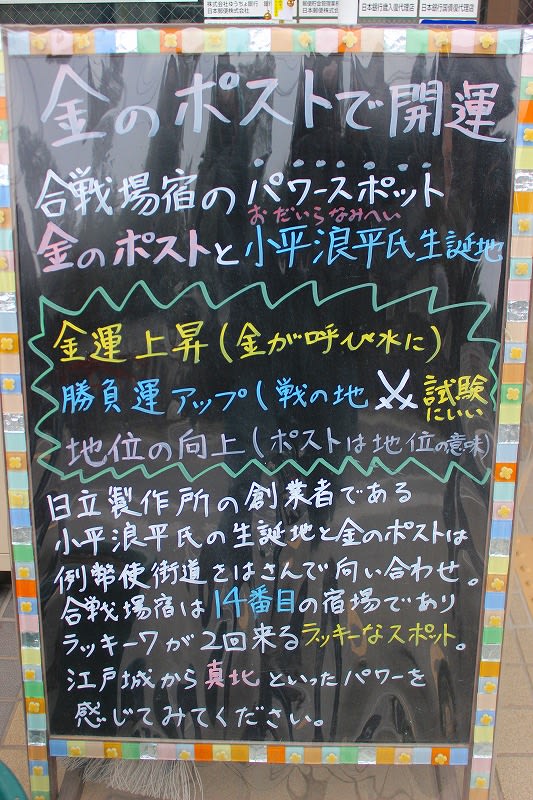 株式会社ゆうちょ銀行
日本郵便株式会社
日本銀行歳入復代理店
日本銀行国債復代理店
金のポストで開運
合戦場宿のパワースポット
おだいらなみへい
金のポストと小平浪平氏生誕地
金運上昇(金が呼び水に)
勝負運アップ(戦の地⚔試験にいい
地位の向上(ポストは地位の意味)
日立製作所の創業者である
小平浪平氏の生誕地と金のポストは
例幣使街道をはさんで向い合わせ。
合戦場宿は14番目の宿場であり
ラッキー7が2回来るラッキーなスポット。
江戸城から真北といったパワーを
感じてみてください。